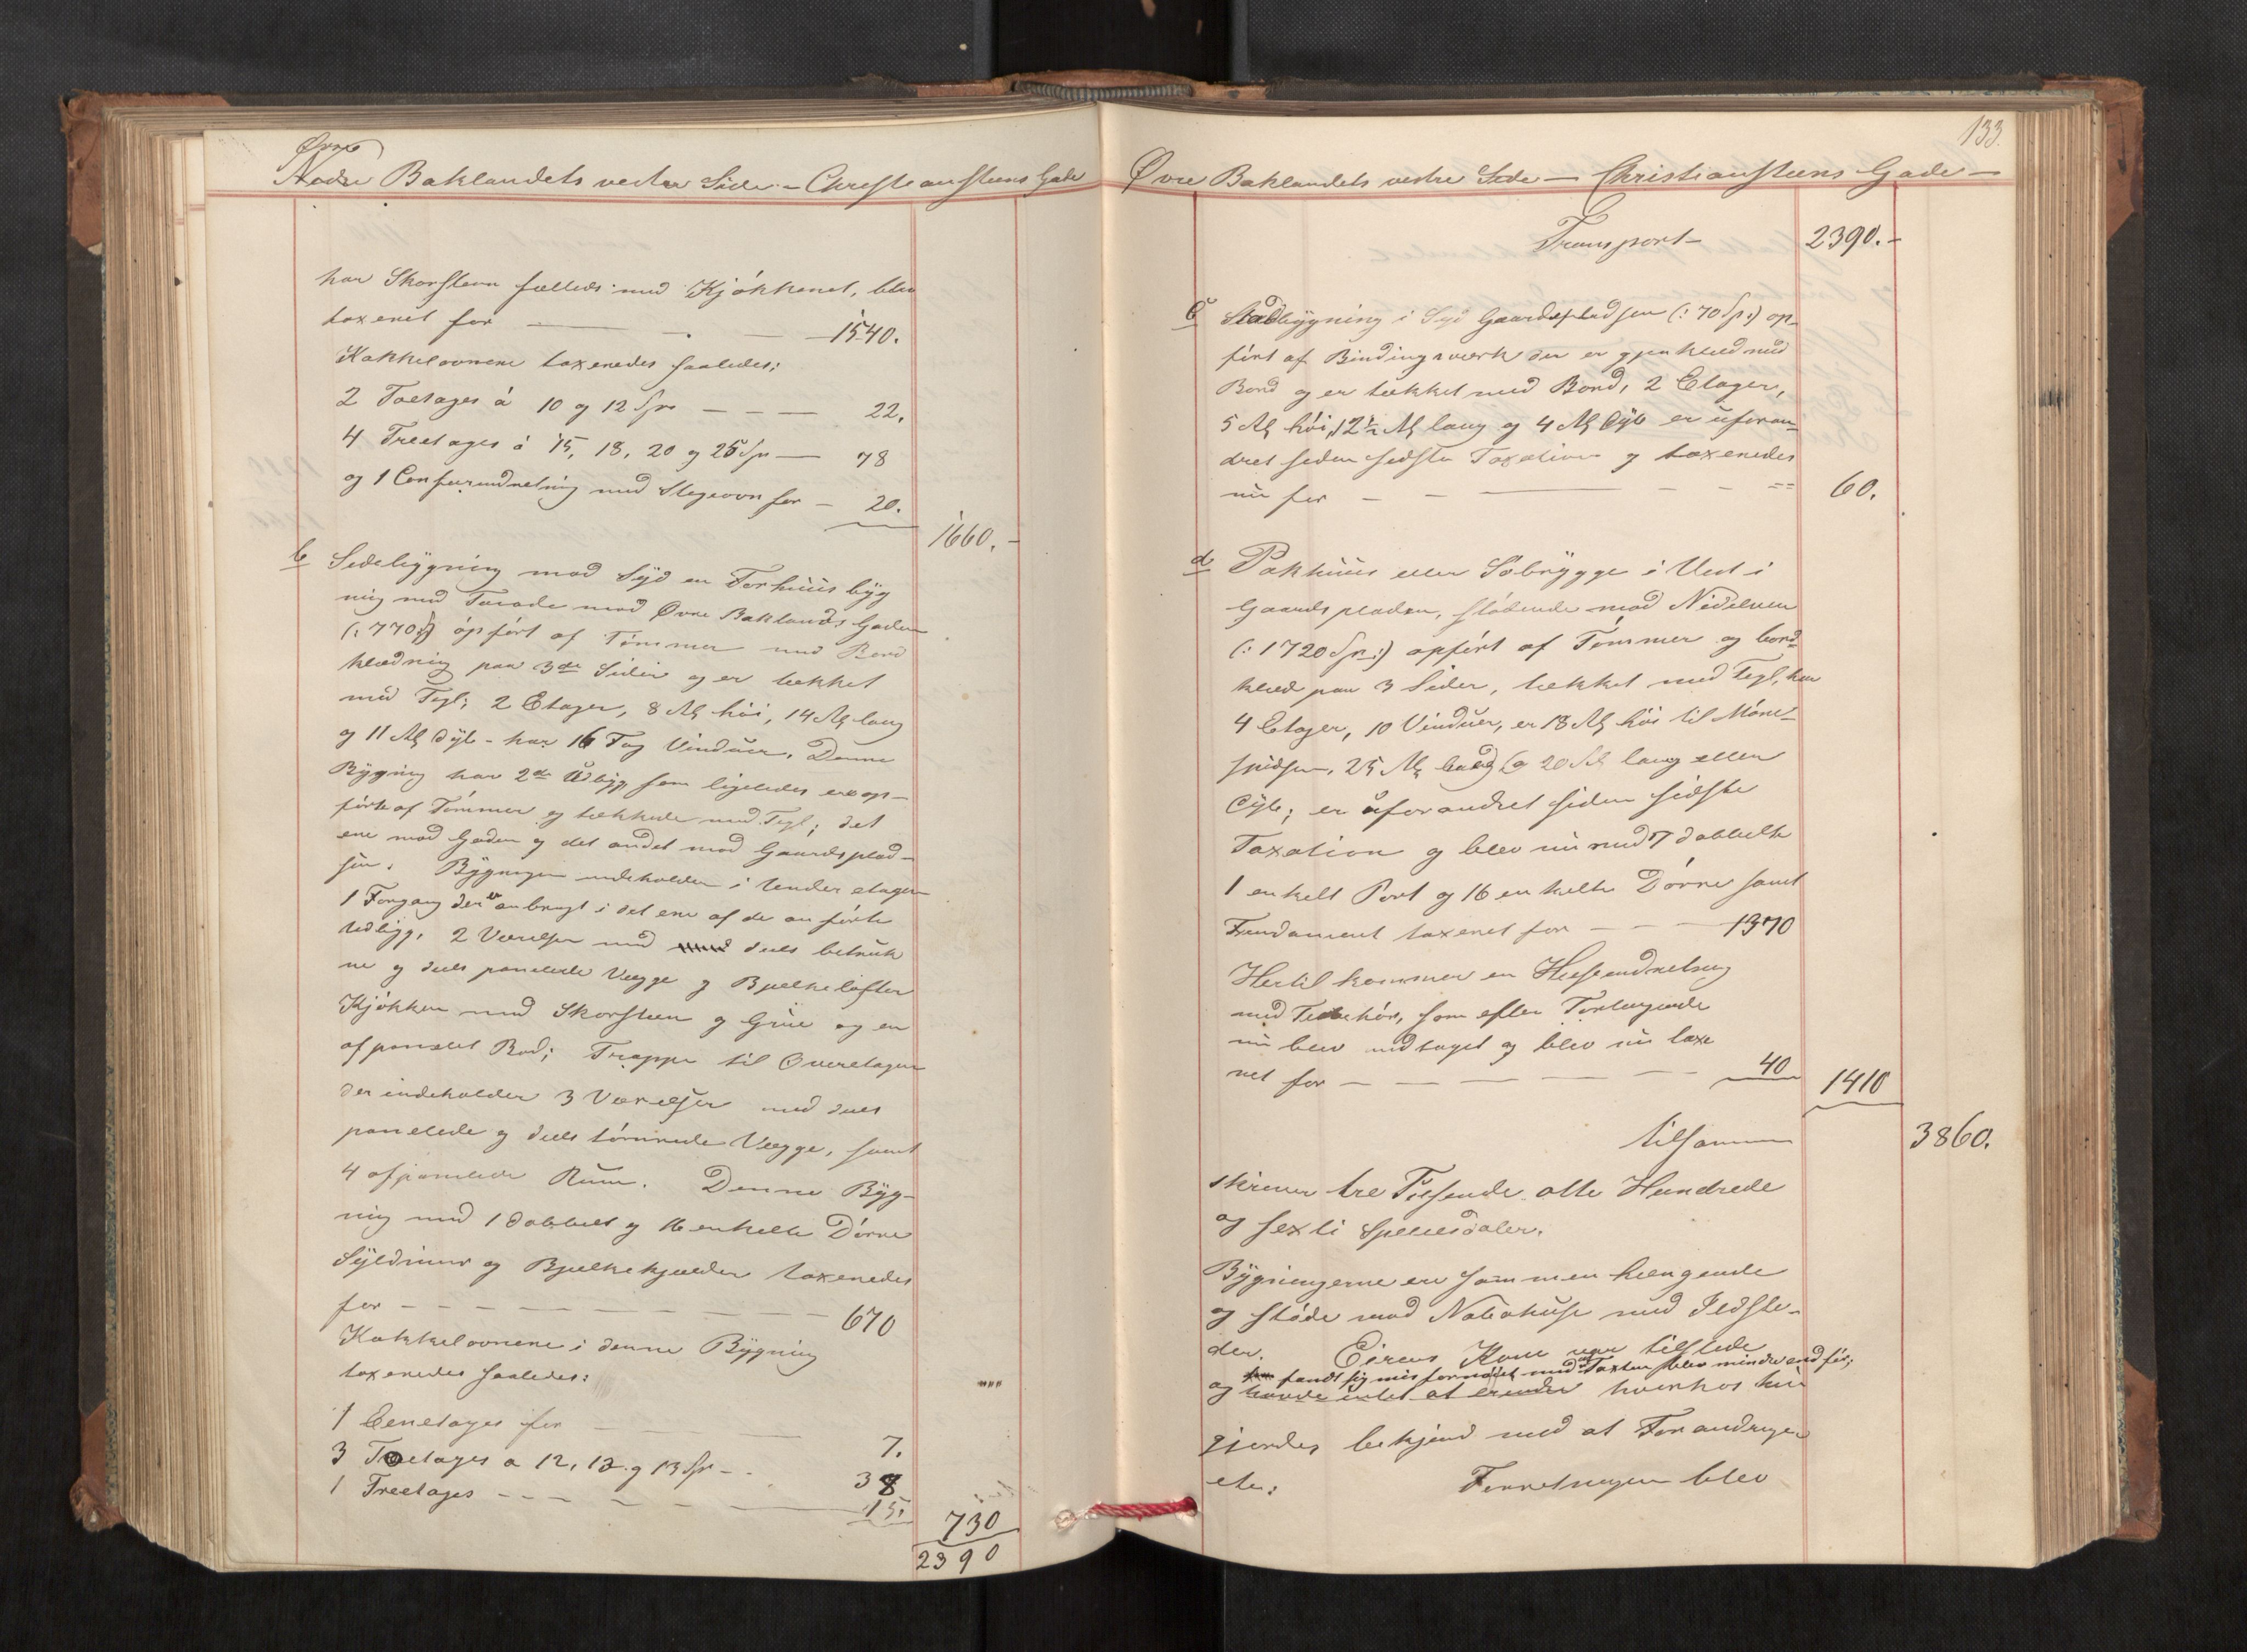 Øvre
Nedre Baklandets vestre Side - Christiansteens Gade
har Skorsteen fælleds med Kjøkkenet, blev
taxeret for — — 1540.
Kakkelovnene taxeredes saaledes:
2 Toetages á 10 og 12 Spd — — — 22.
4 Treetages á 15, 18, 20 og 25 Spd — 78
og 1 Comfurindretning med Stegeovn for — 20.
1660.-
b Sidebygning mod Syd en Forhuusbyg
ning med Facade mod Øvre Baklands Gaden
(: 770 :) opført af Tømmer med Bord
klædning paa 3de Sider og er tækket
med Tegl; 2 Etager, 8 Al høi, 14 Al lang
og 11 Al dyb - har 16 Fag Vinduer. Denne
Bygning har 2de Udbyg, som ligeledes ere op-
førte af Tømmer og tækkede med Tegl; det
ene mod Gaden og det andet mod Gaardsplad-
sen. Bygningen indeholder i Underetagen
1 Forgang der er anbragt i det ene af de anførte
Udbyg, 2 Værelser med deels betrukk
ne og deels panelede Vægge og Bjelkelofter
Kjøkken med Skorsteen og Grue og en
afpanelet Bod; Trappe til Overetagen
der indeholder 3 Værelser med deels
panelede og deels tømrede Vægge, samt
4 afpanelede Rum. Denne Byg-
ning med 1 dobbelt og 16 enkelte Dørre
Syldmuur og Bjelkekjælder taxeredes
for — — — — — — — — 670
Kakkelovnene i denne Bygning
taxeredes saaledes:
1 Eenetages for — — — 7.
3 Toetages a 12, 13 og 13 Spd - . 38
1 Treetages — — — — — — 15.
730
2390
133.
Øvre Baklandets vestre Side — Christiansteens Gade —
Transport — 2390.-
c Stadbygning i Syd Gaardspladsen (: 70 Spd :) op-
ført af Bindingsværk der er gjenklæd med
Bord og er tækket med Bord, 2 Etager,
5 Al høi, 12½ Al lang og 4 Al dyb er uforan-
dret siden sidste Taxation og taxeredes
nu for — — — — — — 60.
d Pakhuus eller Søbrygge i Vest i
Gaardspladsen, stødende mod Nidelven
(: 1720 Spd :) opført af Tømmer og bord-
klæd paa 3 Sider, tækket med Tegl, har
4 Etager, 10 Vinduer, er 18 Al høi til Møne-
spidsen, 25 Al bred og 20 Al lang eller
dyb; er uforandret siden sidste
Taxation og blev nu med 7 dobbelte
1 enkelt Port og 16 enkelte Dørre samt
Fundament taxeret for — — — 1370
Hertil kommer en Heiseindretning
med Tilbehør, som efter Forlangende
nu blev medtaget og blev nu taxe
ret for — — — — — — 40
1410
tilsammen 3860.
skriver tre Tusende otte Hundrede
og sexti Speciesdaler.
Bygningerne ere sammenhængende
og støde mod Nabohuse med Ildste-
der. Eierens Kone var tilstede
fandt sig misfornøiet med at Taxten blev mindre end før;
og havde intet at erindre hvorhos hun
gjordes bekjend med at Forandringer
etc: Forretningen blev